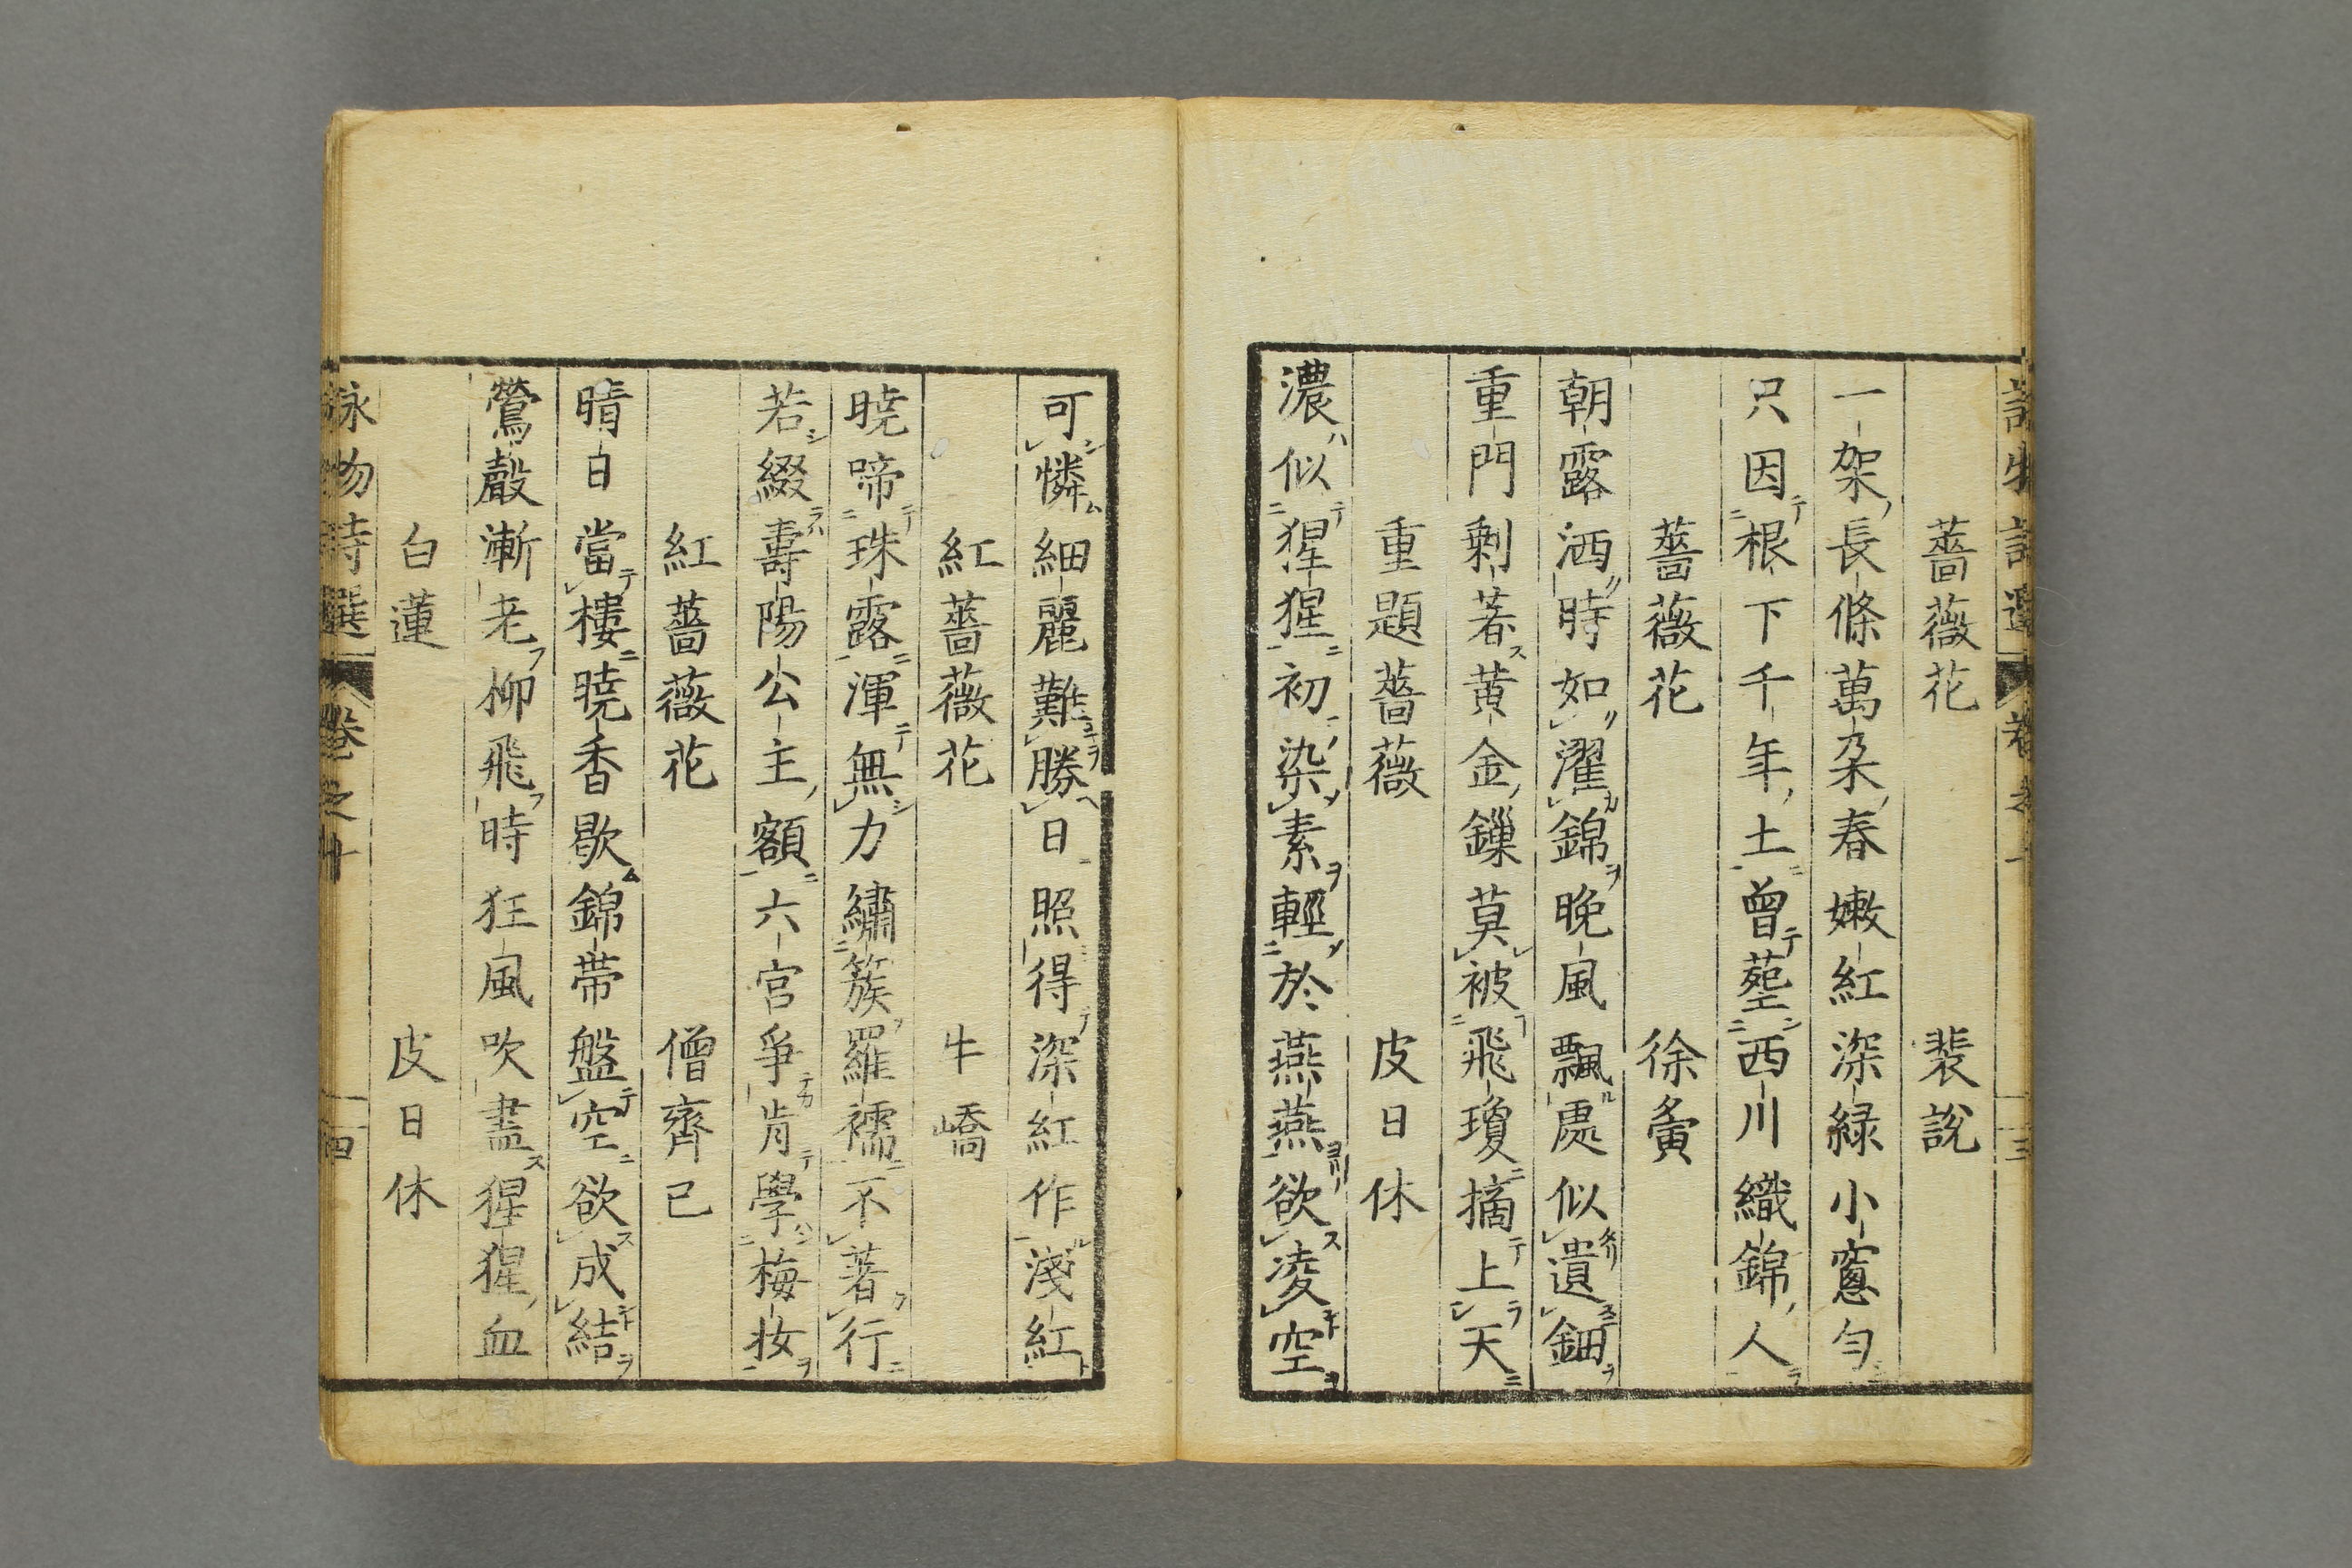 薔薇花　裴説
一架長條萬朶春嫩紅深緑小窻勻
只因根下千年土曾塟西川織錦人
薔薇花　徐夤
朝露洒時如濯錦晩風飄處似遺鈿
重門剰著黄金鏁莫被飛瓊摘上天
重題薔薇　皮日休
濃似猩猩初染素輕於燕燕欲凌空
可憐細麗難勝日照得深紅作淺紅
紅薔薇花　牛嶠
曉啼珠露渾無力繡簇羅襦不著行
若綴壽陽公主額六宮爭肯學梅妝
紅薔薇花　僧齊己
晴日當樓曉香歇錦帶盤空欲成結
鶯聲漸老柳飛時狂風吹盡猩猩血
白蓮　皮日休
詠物詩選　卷之十　四